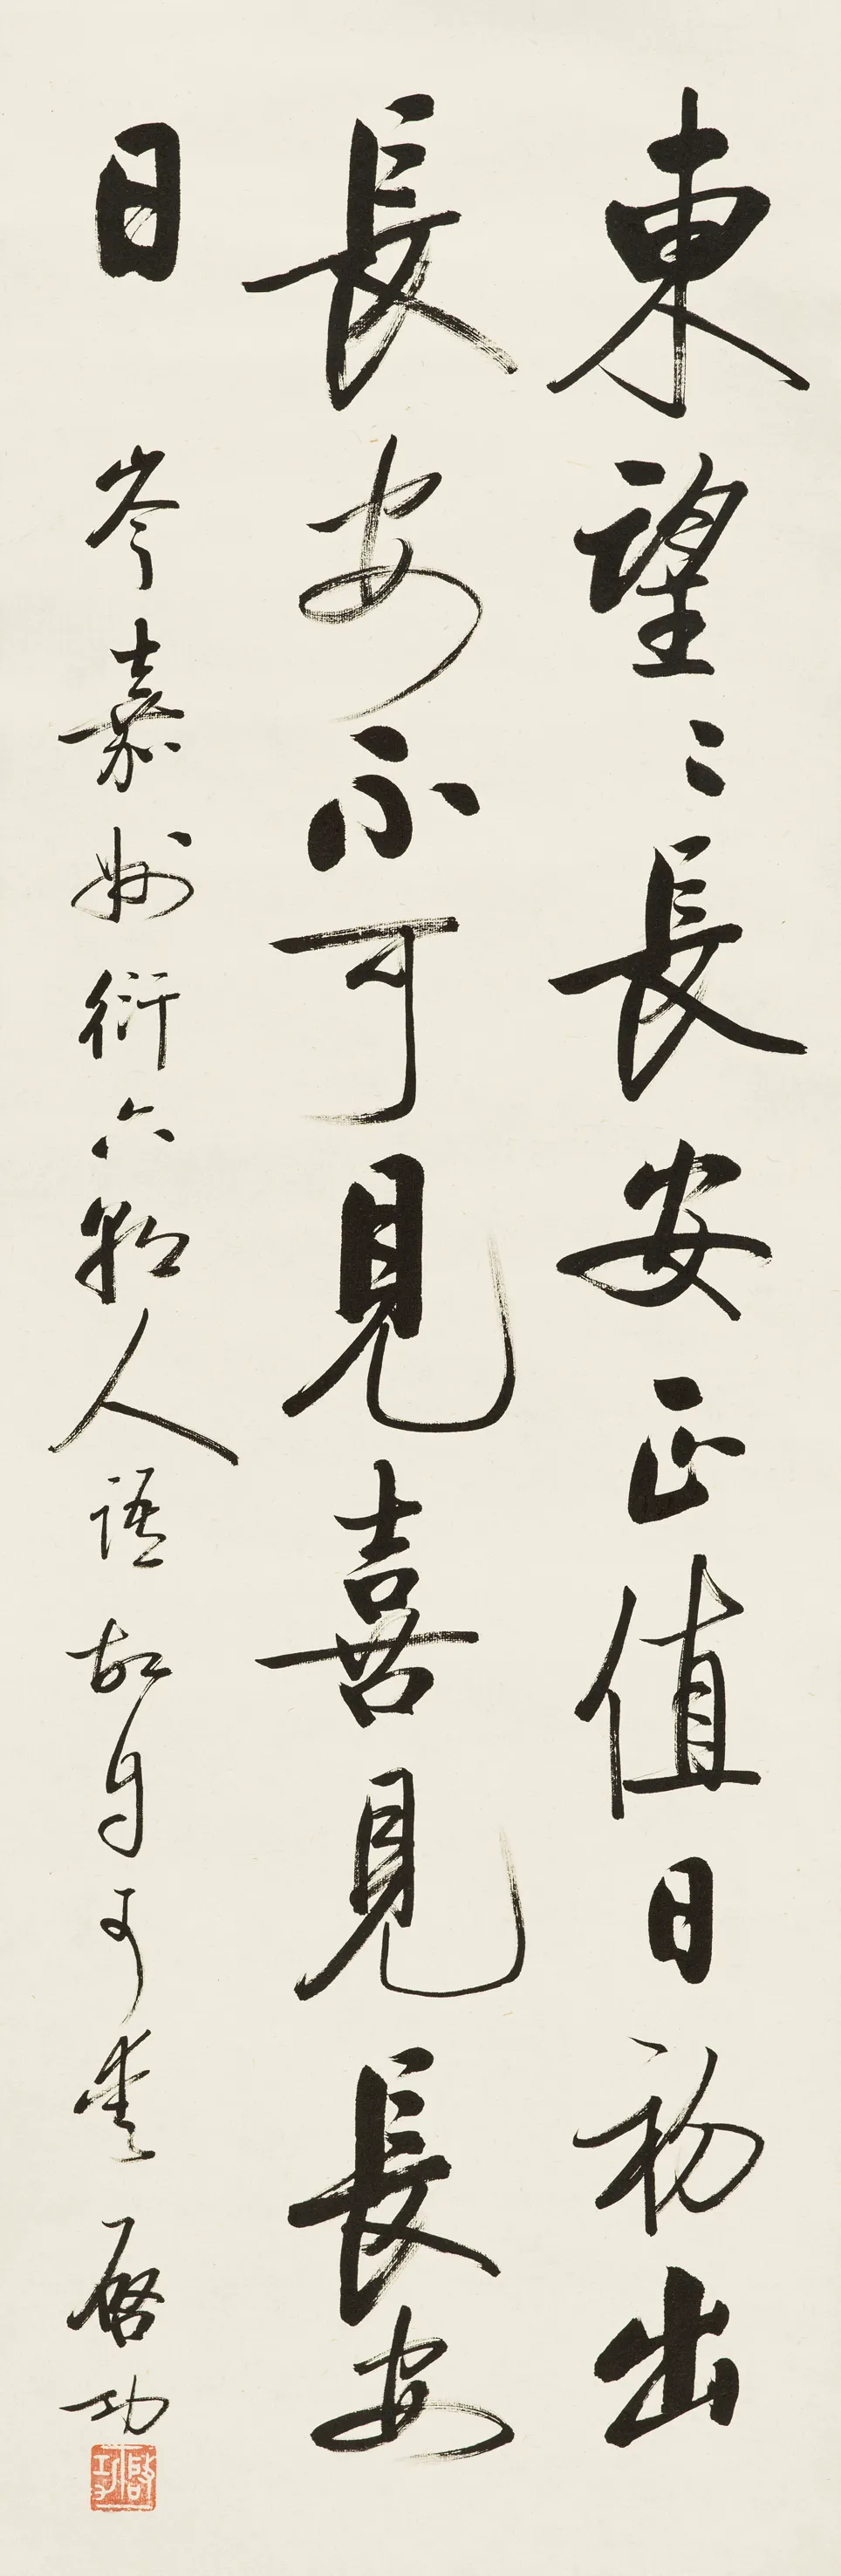 東望〻長安正值日初出
長安不可見喜見長安
日 岑嘉州衍六朝人語故自可愛 啓功
啓功